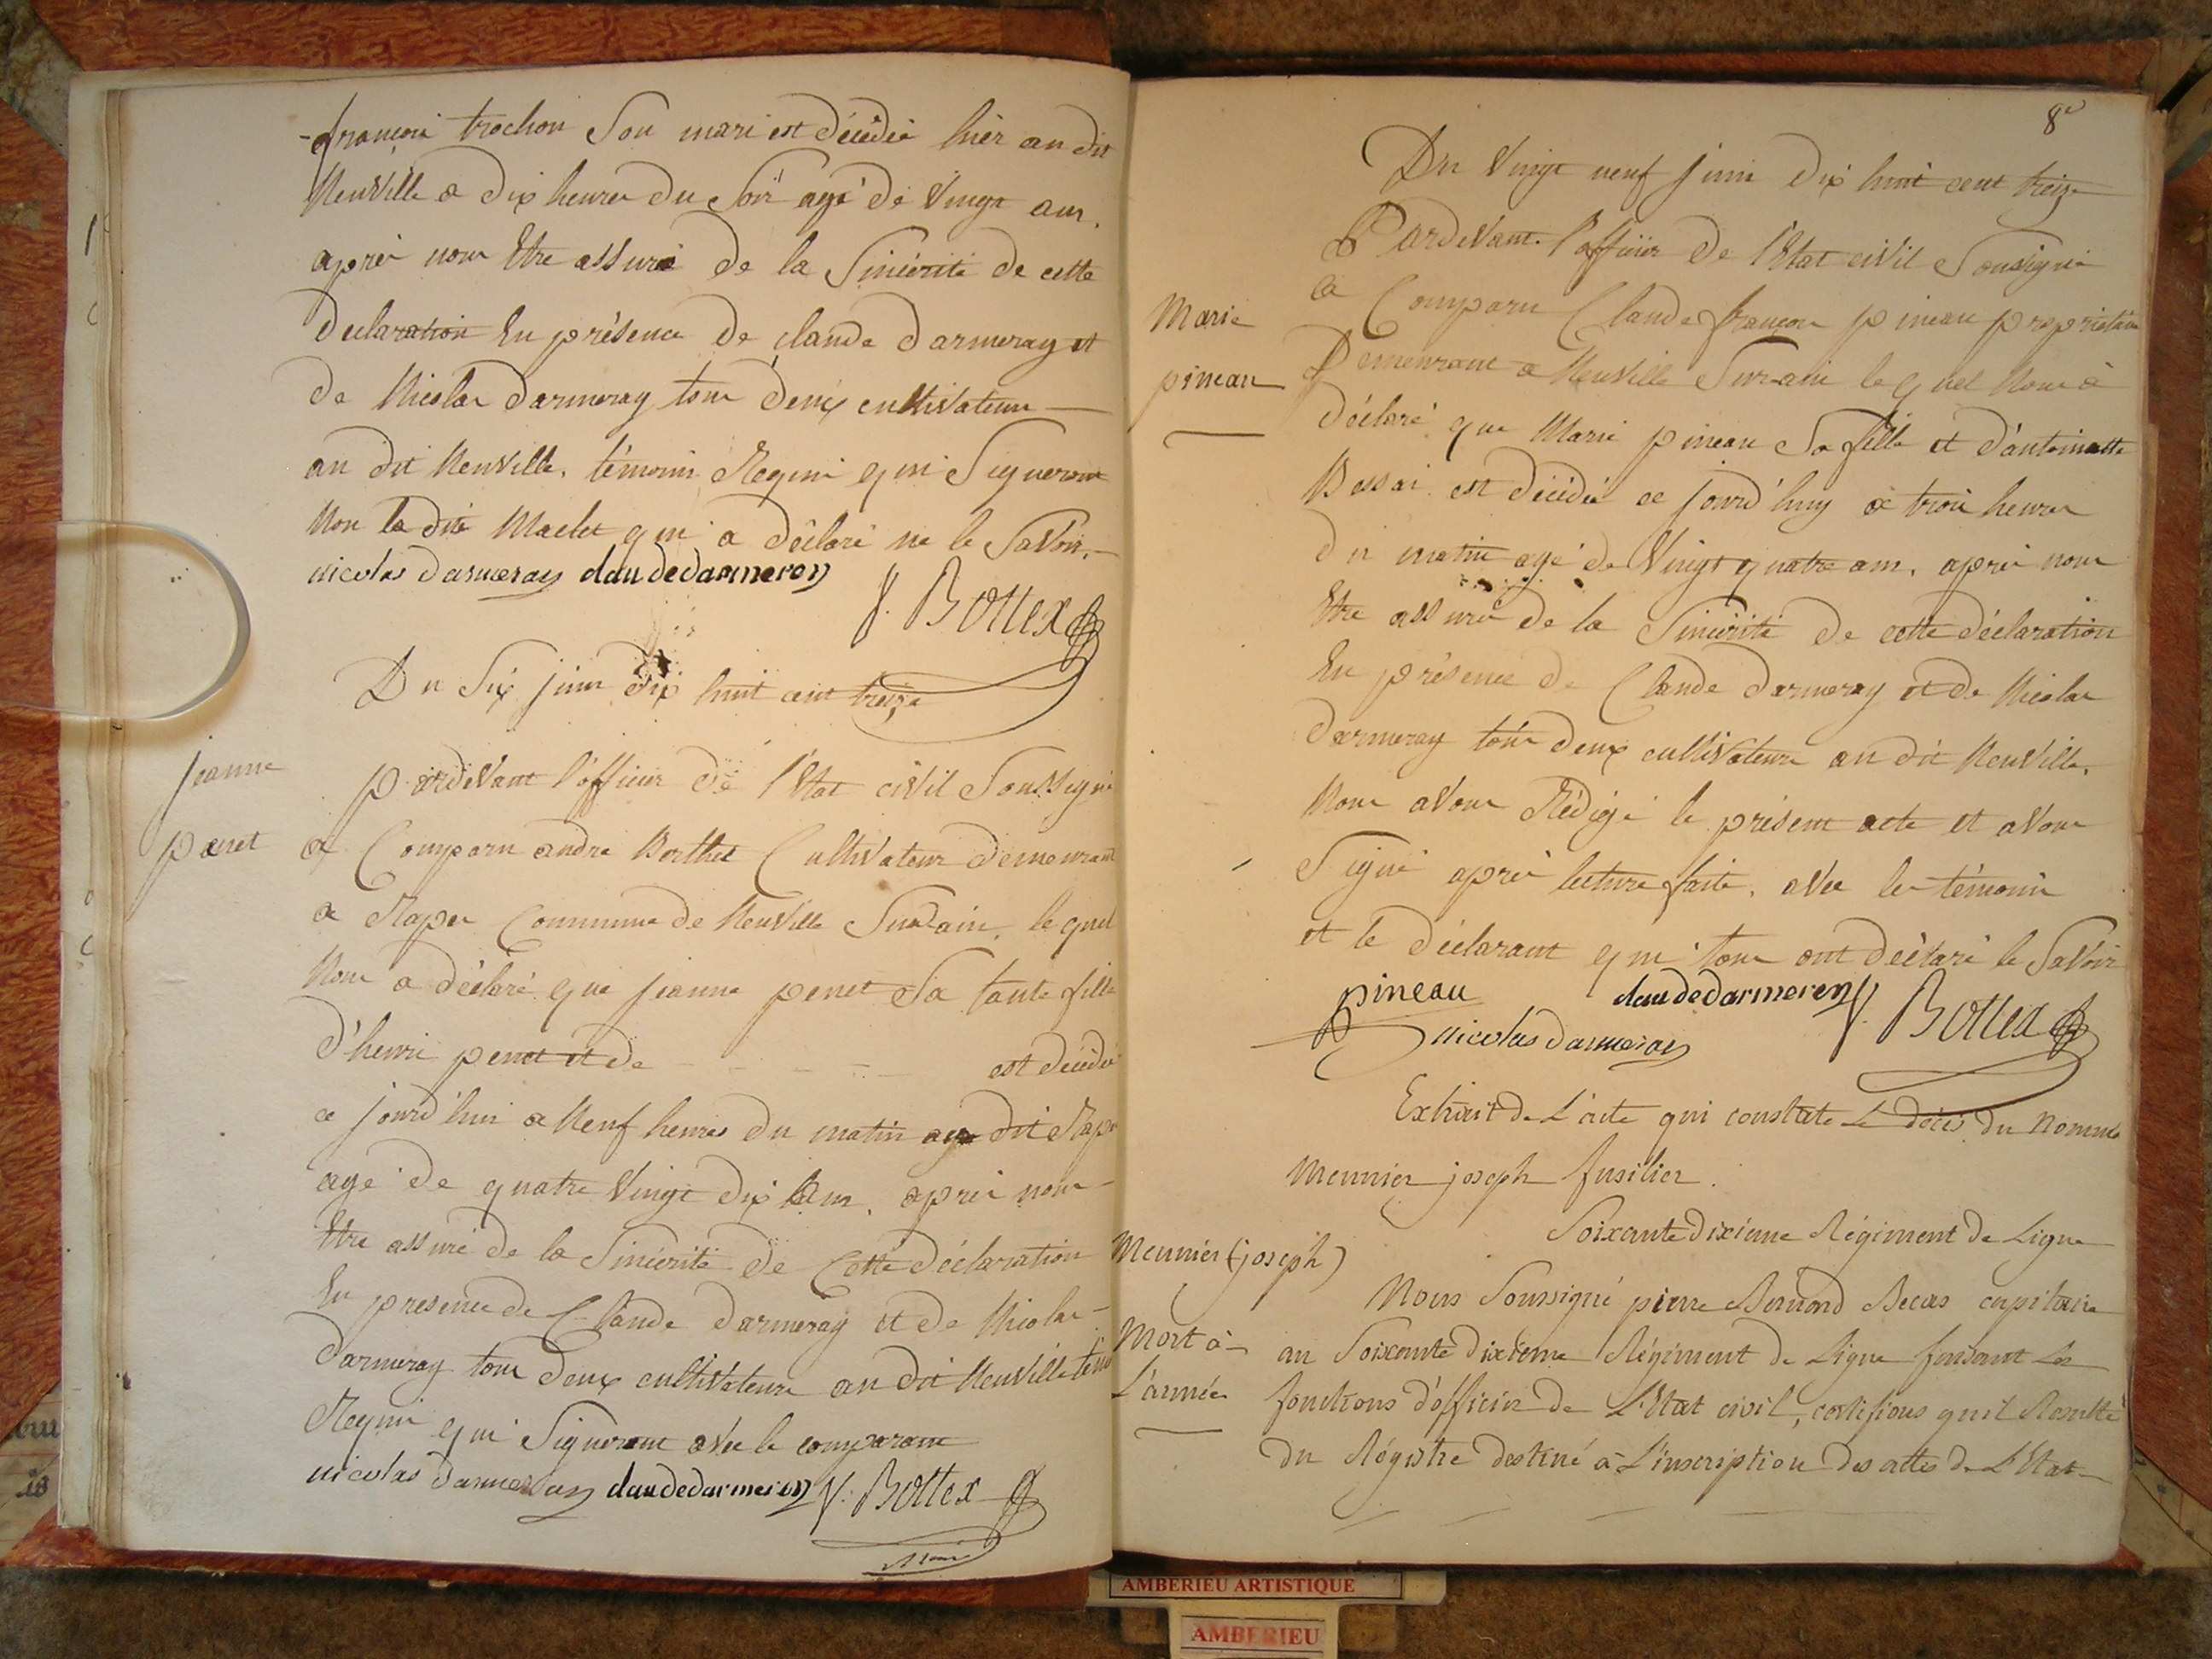 françois trochon Son mari est décédé hier au dit
Neuville a dix heures du Soir agé de Vingt ans,
après nous Etre assuré de la Sincérité de cette
declaration En présence de claude darmeray et
de Nicolas darmeray tous deux cultivateurs
au dit Neuville, témoins Requis qui Signeront
Non la dite Maclet qui a déclaré ne le Savoir.
nicolas darmeray claudedarmerey
J. Bottex
Du Six juin dix huit cent treize
jeanne
penet
pardevant l'officier de l'Etat civil Soussigné
a Comparu andré Berthet Cultivateur demeurant
a Rape Commune de Neuville Sur ain, le quel
Nous a déclaré que jeanne penet Sa tante fille
d'henri penet et de - - - - est décédé
ce jourd'hui a Neuf heures du matin au dit Rape
agé de quatre Vingt dix ans, après nous
Etre assuré de la Sincérité de Cette déclaration
En presence de Claude darmeray et de Nicolas
darmeray tous deux cultivateurs au dit Neuville
Requis qui Signeront avec le comparant
nicolas darmeray claudedarmerey J. Bottex
8e
Du Vingt neuf juin dix huit cent treize
Pardevant l'officier de l'Etat civil Soussigné
Marie
pineau
a Comparu Claude françois pineau proprietaire
Demeurant a Neuville Sur ain le quel Nous a
déclaré que Marie pineau Sa fille et d'antoinette
Bessai est décédée ce jourd'huy a trois heures
du matin agé de Vingt quatre ans, après nous
Etre assuré de la Sincérité de cette déclaration
En présence de Claude darmeray et de Nicolas
darmeray tous deux cultivateurs au dit Neuville,
Nous avons Rédigé le présent acte et avons
Signé après lecture faite, avec les témoins
et le déclarant qui tous ont déclaré le Savoir
pineau claudedarmerey J. Bottex
nicolas darmeray
Extrait de L'acte qui constate Le décès du Nommé
Meunier joseph fusilier.
Soixante dixième Régiment de Ligne
Meunier (joseph)
Mort à
L'armée
Nous Soussigné pierre Bernord Becas capitaine
au Soixante dixieme Régiment de Ligne faisant Les
fonctions d'officier de L'Etat civil, certifions quil Resulte
du Régistre destiné à L'inscription des actes de L'Etat
AMBERIEU ARTISTIQUE
AMBERIEU